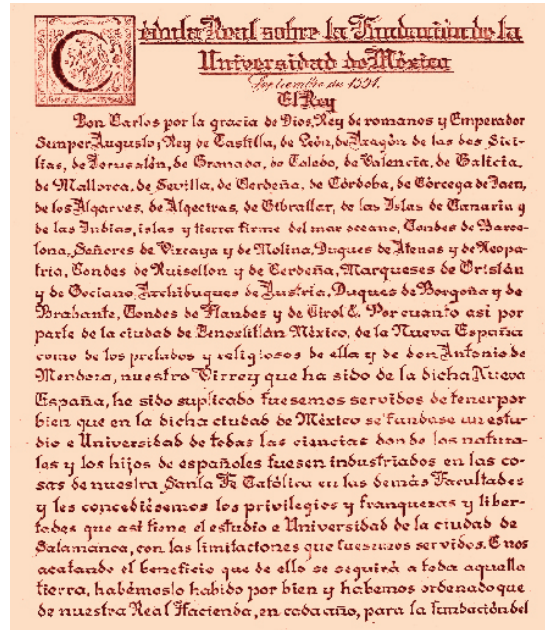 Cédula Real sobre la Fundación de la
Universidad de México
Septiembre de 1551.
El Rey
Don Carlos por la gracia de Dios, Rey de romanos y Emperador
Semper Augusto, Rey de Castilla, de León, de Aragón de las dos Sici-
lias, de Jerusalén, de Granada, de Toledo, de Valencia, de Galicia,
de Mallorca, de Sevilla, de Cerdeña, de Córdoba, de Córcega de Jaen,
de los Algarves, de Algeciras, de Gibraltar, de las Islas de Canaria y
de las Indias, islas y tierra firme del mar oceano, Condes de Barce-
lona, Señores de Vizcaya y de Molina, Duques de Atenas y de Neopa-
tria, Condes de Ruisellon y de Cerdeña, Marqueses de Oristán
y de Gociano, Archiduques de Austria, Duques de Borgoña y de
Brabante, Condes de Flandes y de Tirol &. Por cuanto asi por
parte de la ciudad de Tenoxtitlán México, de la Nueva España
como de los prelados y religiosos de ella y de don Antonio de
Mendoza, nuestro Virrey que ha sido de la dicha Nueva
España, he sido suplicado fuesemos servidos de tener por
bien que en la dicha ciudad de México se fundase un estu-
dio e Universidad de todas las ciencias donde los natura-
les y los hijos de españoles fuesen industriados en las co-
sas de nuestra Santa Fe Católica en las demás Facultades
y les concediésemos los privilegios y franquezas y liber-
tades que asi tiene el estudio e Universidad de la ciudad de
Salamanca, con las limitaciones que fuesemos servidos. E nos
acatando el beneficio que de ello se seguirá a toda aquella
tierra, habémoslo habido por bien y habemos ordenado que
de nuestra Real Hacienda, en cada año, para la fundación del